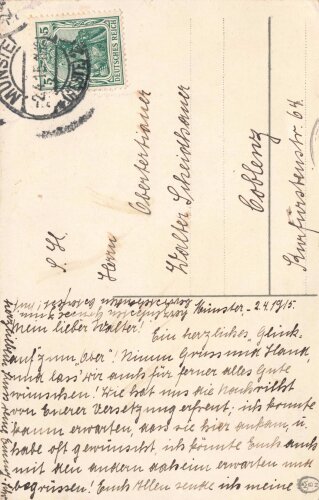 MÜNSTER
2.4.15
DEUTSCHES REICH
5
S. H.
Herrn Obertertianer
Walter Scheidhauer
Coblenz
Kurfürstenstr. 64
Münster - 2.4.1915.
Mein lieber Walter!
Ein herzliches „Glück-
auf“ zum „Ober“! Nimm Gruss und Hand,
und lass' wir auch für ferner alles Gute
wünschen! Wie hat uns die Nachricht
von Eurer Versetzung erfreut; ich konnte
kaum erwarten, dass sie hier ankam, u.
habe oft gewünscht, ich könnte Euch auch
mit den andern daheim erwarten und
begrüssen! Euch Allen sende ich meine